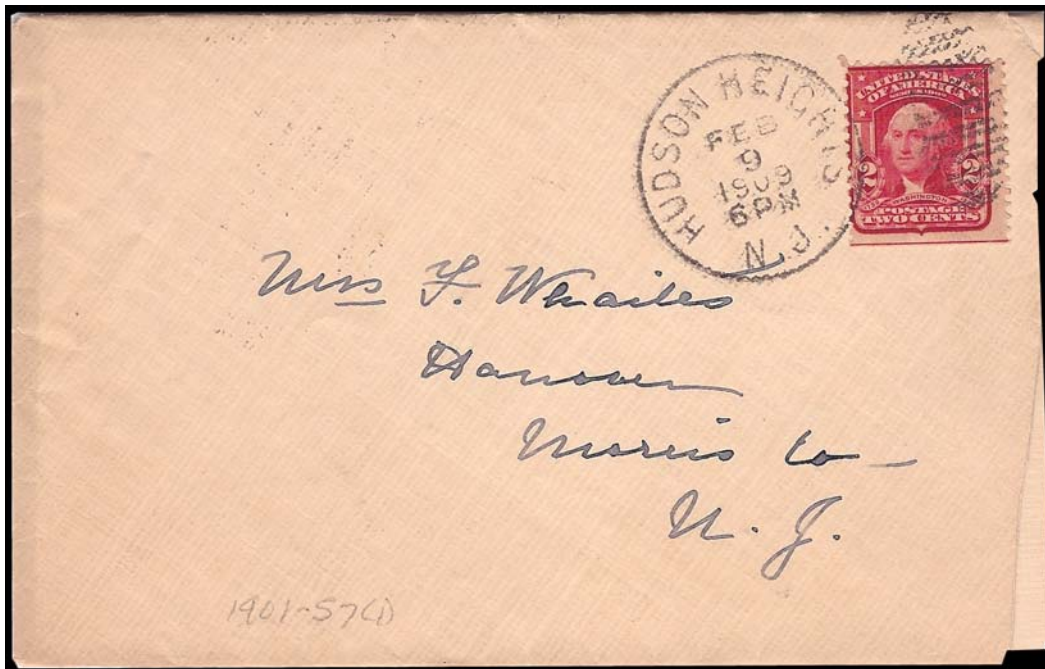 HUDSON HEIGHTS
FEB
9
1909
6PM
N.J.
UNITED STATES
OF AMERICA
2 2
WASHINGTON
POSTAGE
TWO CENTS
Miss F.
Hanover
Morris Co -
N. J.
1901-57(1)